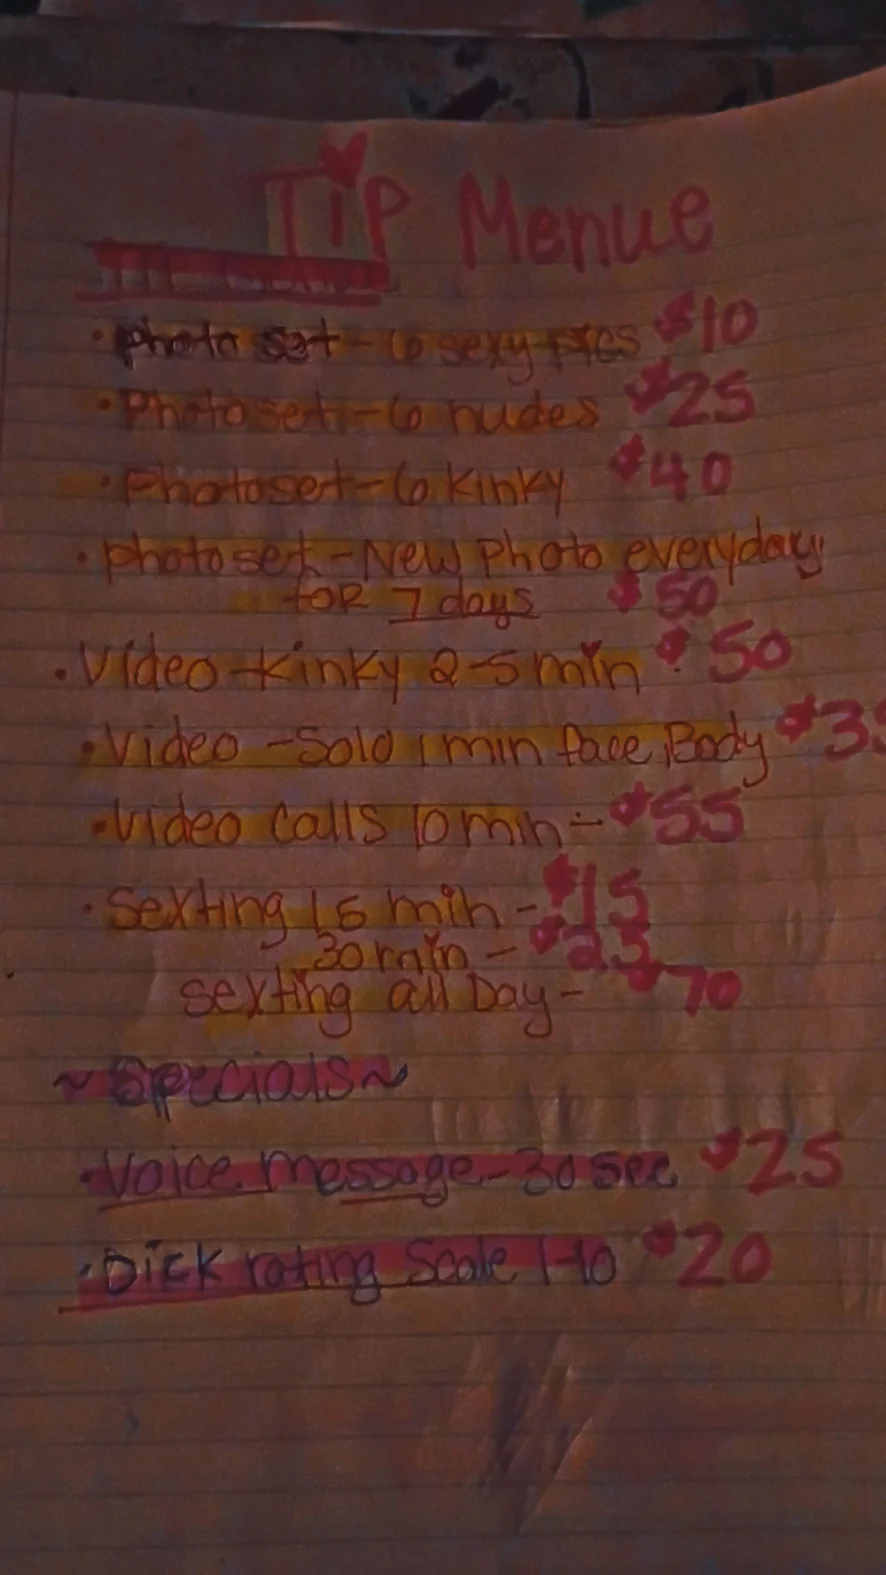 Tip Menue
• Photo set - 6 sexy pics $10
• Photoset - 6 nudes $25
• Photoset - 6 Kinky $40
• photoset - New Photo everyday
for 7 days $50
• Video - Kinky 2-5 min $50
• Video - Solo 1 min face, Body $3
• Video Calls 10 min - $55
• Sexting 15 min - $15
30 min - $25
sexting all Day - $70
~ Specials ~
• Voice message - 30 sec $25
• Dick rating Scale 1-10 $20